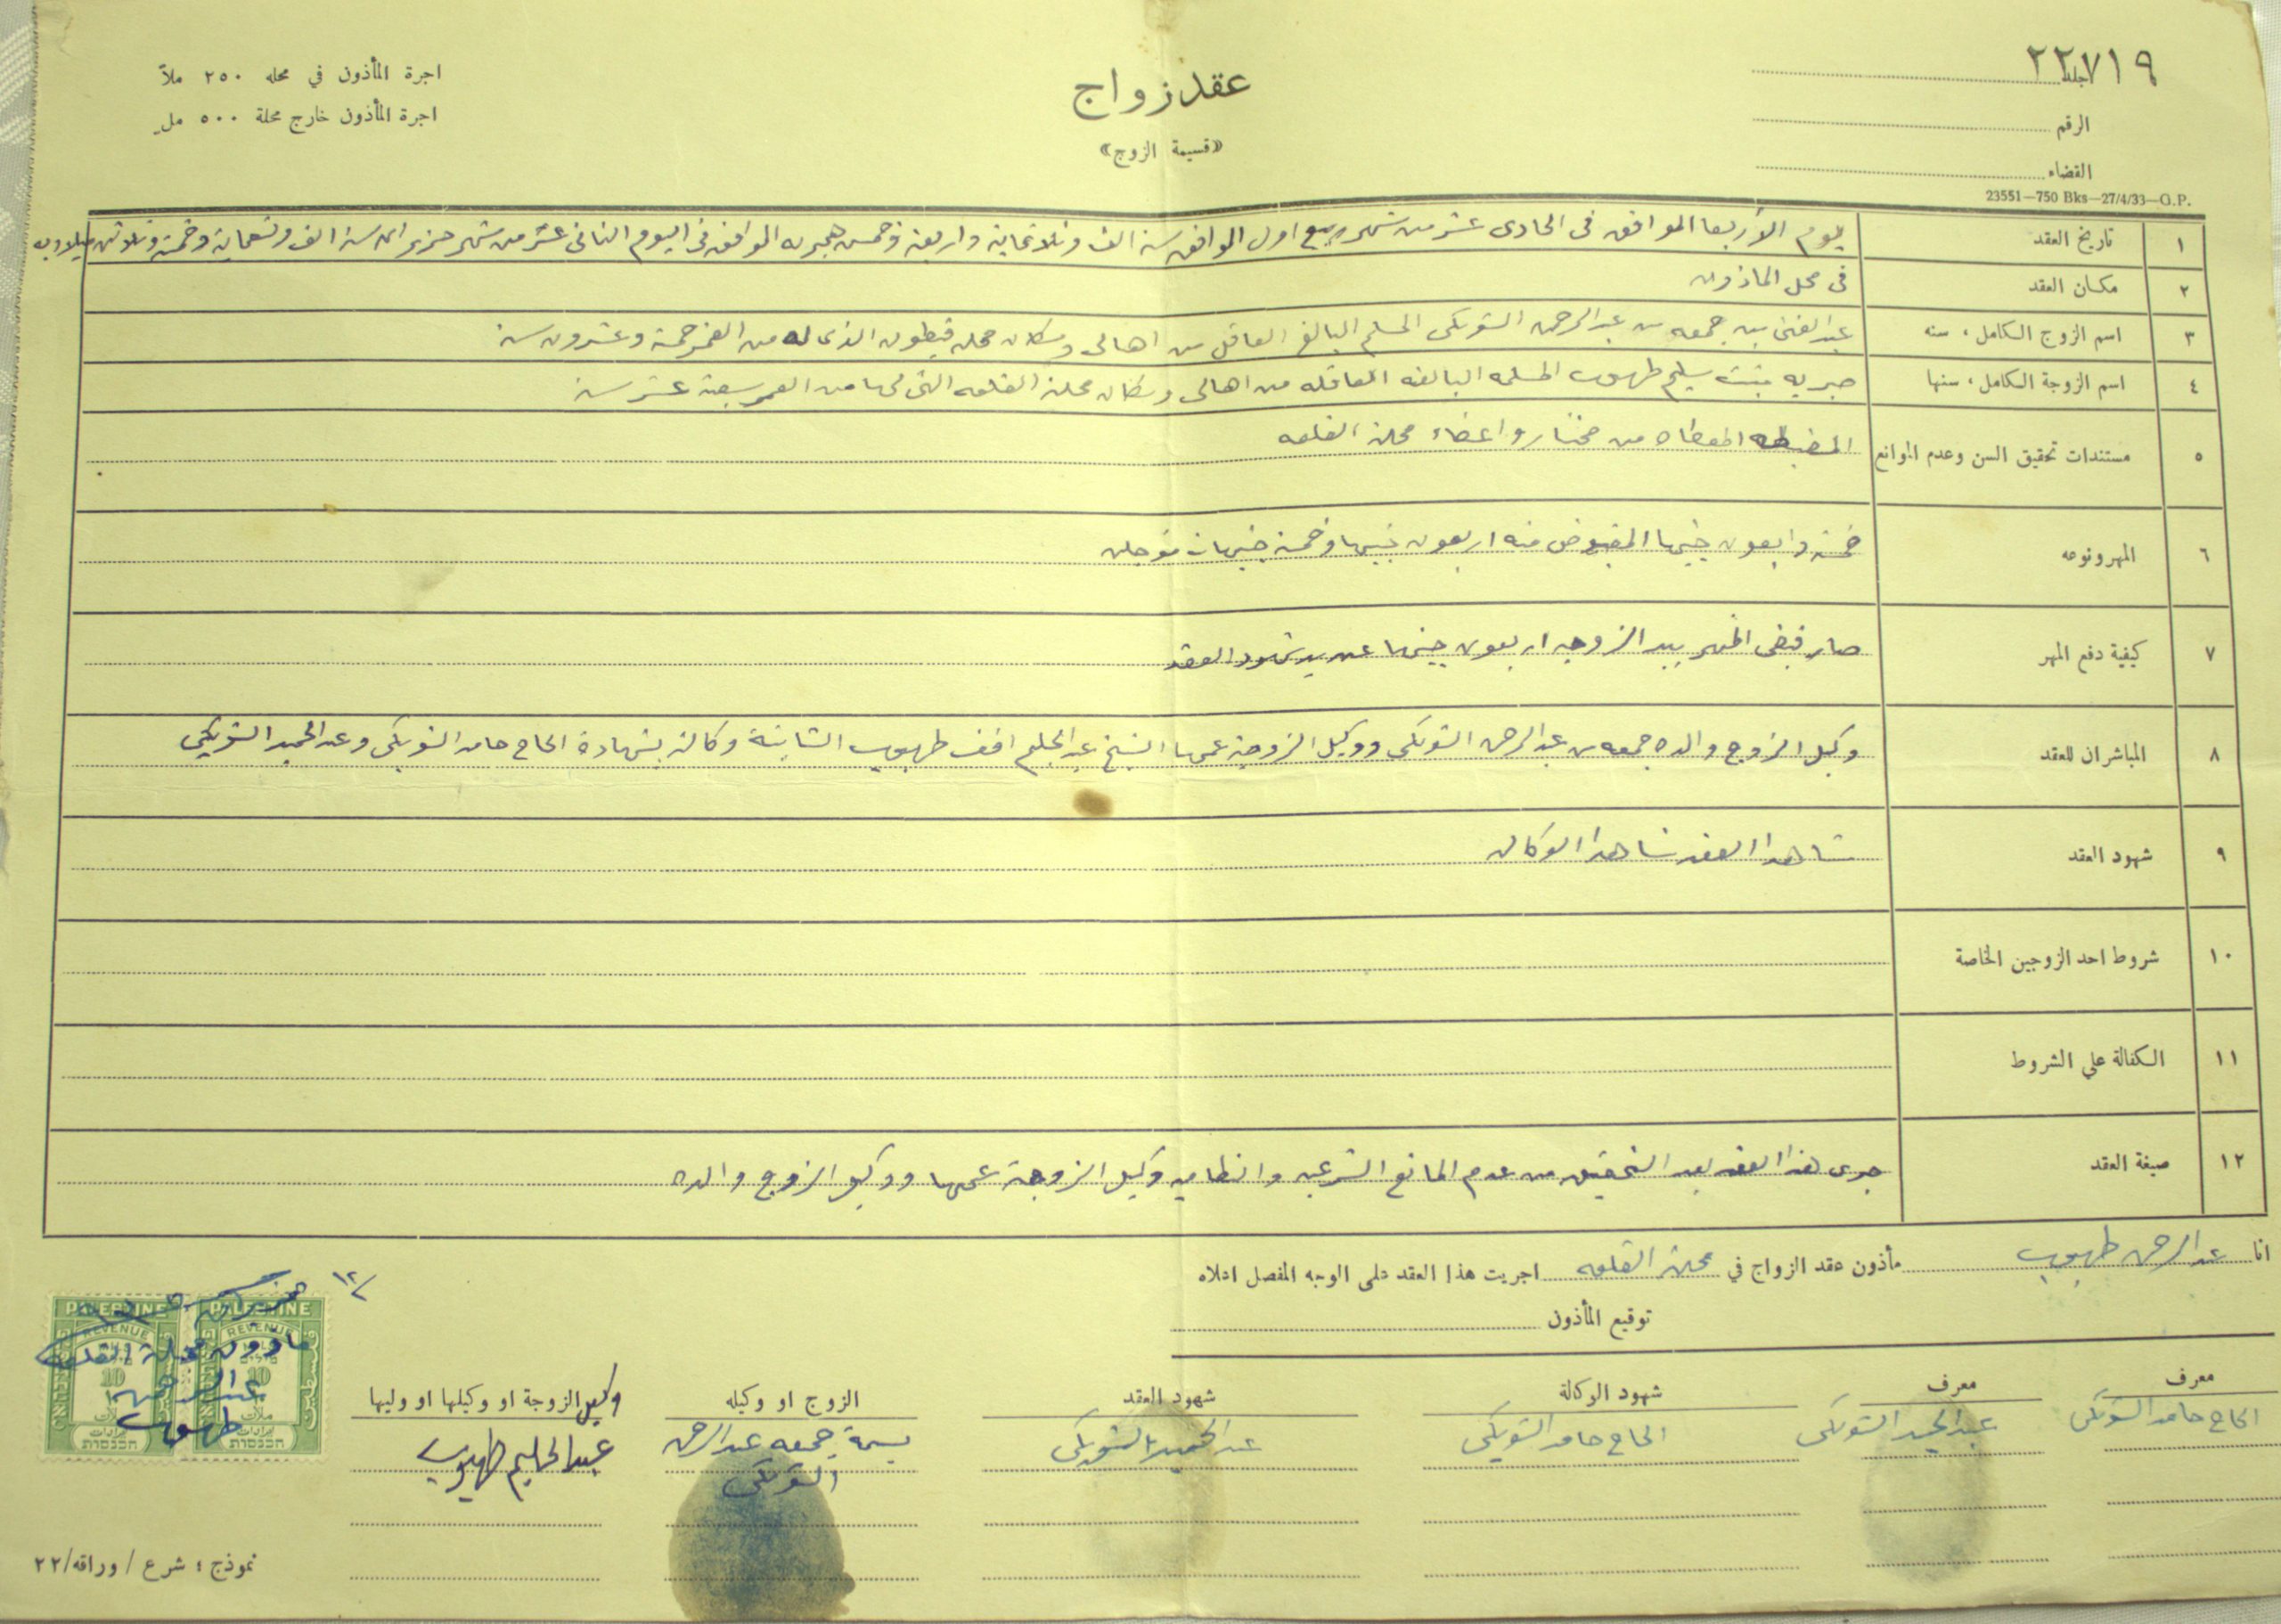 ٢٢٧١٩
جلد
الرقم
القضاء
23551—750 Bks—27/4/33—G.P.
عقد زواج
«قسيمة الزوج»
اجرة المأذون في محله ٢٥٠ ملاً
اجرة المأذون خارج محلة ٥٠٠ مل
١ تاريخ العقد يوم الأربعا الموافق فى الحادى عشر من شهر ربيع اول الموافق سنة الف وثلاثماية واربعة وخمسين هجريه الموافق فى اليوم الثانى عشر من شهر حزيران سنة الف وتسعماية وخمسة وثلاثين ميلاديه
٢ مكان العقد فى محل الماذون
٣ اسم الزوج الكامل، سنه عبد الغنى بن جمعه بن عبد الرحمن الشويكى المسلم البالغ العاقل من اهالى وسكان محلة قيطون الذى له من العمر خمسة وعشرون سنة
٤ اسم الزوجة الكامل، سنها صبريه بنت سليم طهبوب المسلمه البالغه العاقله من اهالى وسكان محلة القلعه التى لها من العمر سبعة عشر سنة
٥ مستندات تحقيق السن وعدم الموانع المضبطه المعطاه من مختار واعضاء محلة القلعه
٦ المهر ونوعه خمسة واربعون جنيها المقبوض منه اربعون جنيها وخمسة جنيهات مؤجله
٧ كيفية دفع المهر صار قبض المهر بيد الزوجه اربعون جنيها عن يد شهود العقد
٨ المباشران للعقد وكيل الزوج والده جمعه بن عبد الرحمن الشويكى ووكيل الزوجة عمها الشيخ عبد الحليم افندى طهبوب الثابتة وكالته بشهادة الحاج حامد الشويكى وعبد الحميد الشويكي
٩ شهود العقد شاهدا العقد شاهدا الوكاله
١٠ شروط احد الزوجين الخاصة
١١ الكفالة على الشروط
١٢ صيغة العقد جرى هذا العقد بعد التحقيق من عدم المانع الشرعيه والنظاميه وكيل الزوجة عمها ووكيل الزوج والده
انا عبد الرحمن طهبوب مأذون عقد الزواج في محلة القلعه اجريت هذا العقد على الوجه المفصل اعلاه
توقيع المأذون
معرف معرف شهود الوكالة شهود العقد الزوج او وكيله وكيل الزوجة او وكيلها او وليها
الحاج حامد الشويكى عبد الحميد الشويكى الحاج حامد الشويكي عبد الحميد الشويكى بصمة جمعه عبد الرحمن عبد الحليم طهبوب
الشويكى
١٢/
حزيران
مأذون محلة القلعه
عبد الرحمن
طهبوب
PALESTINE PALESTINE
REVENUE REVENUE
10 10
ملات ملات
ايرادات ايرادات
הכנסות הכנסות
نموذج؛ شرع / وراقه/٢٢